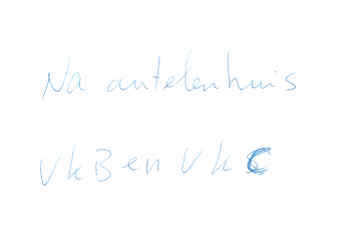 Na antelenhuis
VkBen VkC